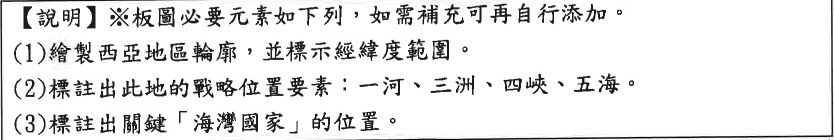 【說明】※板圖必要元素如下列，如需補充可再自行添加。
(1)繪製西亞地區輪廓，並標示經緯度範圍。
(2)標註出此地的戰略位置要素：一河、三洲、四峽、五海。
(3)標註出關鍵「海灣國家」的位置。